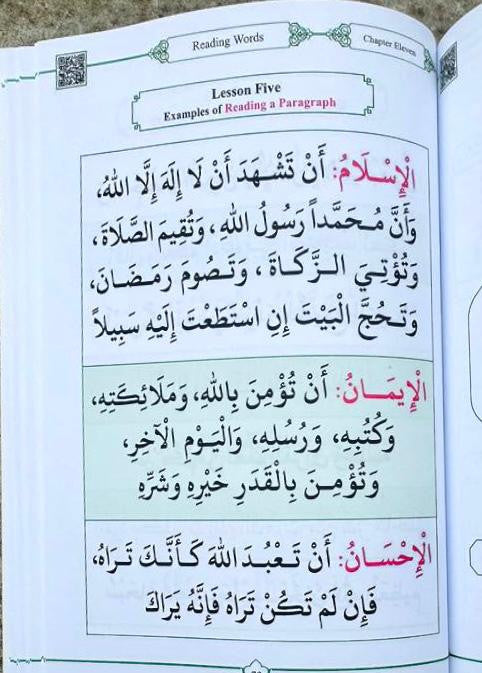 Reading Words
Chapter Eleven
Lesson Five
Examples of Reading a Paragraph
الْإِسْـلَامُ: أَنْ تَشْـهَدَ أَنْ لَا إِلَهَ إِلَّا اللهُ،
وَأَنَّ مُـحَمَّداً رَسُولُ اللهِ، وَتُقِيمَ الصَّلَاةَ،
وَتُؤْتِـيَ الـزَّكَـاةَ، وَتَـصُومَ رَمَـضَـانَ،
وَتَـحُجَّ الْبَيْتَ إِنِ اسْتَطَعْتَ إِلَيْهِ سَبِيلاً
الْإِيمَـانُ: أَنْ تُؤْمِنَ بِاللهِ، وَمَلَائِكَتِهِ،
وَكُتُبِهِ، وَرُسُلِهِ، وَالْيَـوْمِ الْآخِرِ،
وَتُؤْمِـنَ بِالْقَدَرِ خَيْرِهِ وَشَرِّهِ
الْإِحْسَـانُ: أَنْ تَـعْبُـدَ اللهَ كَـأَنَّـكَ تَرَاهُ،
فَإِنْ لَمْ تَكُنْ تَرَاهُ فَإِنَّهُ يَرَاكَ